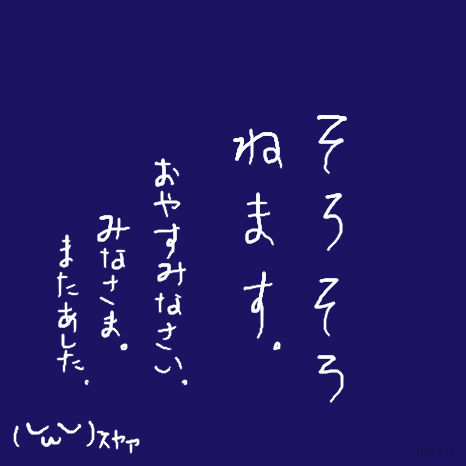 そろそろ
ねます。
おやすみなさい。
みなさま。
またあした。
(︶ω︶)スヤァ